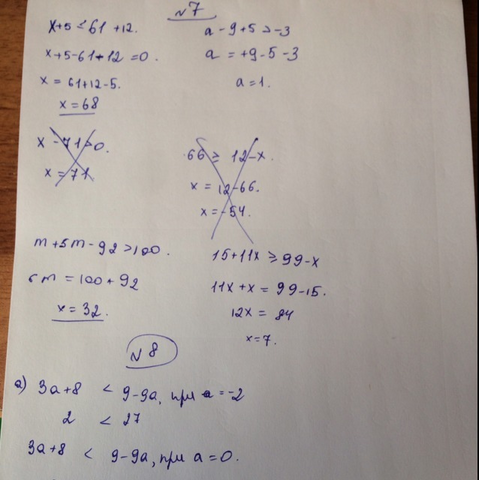 №7
x+5 ≤ 61 + 12.
x+5-61+12=0.
x = 61+12-5.
x = 68
a - 9 + 5 > -3
a = +9-5-3
a = 1.
x - 71 > 0.
x = 71
66 ≥ 12-x.
x = 12-66.
x = -54.
m + 5m - 92 > 100.
6m = 100 + 92
x = 32.
15+11x ≥ 99-x
11x + x = 99-15.
12x = 84
x = 7.
№8
а) 3a+8 < 9-9a, при a = -2
2 < 27
3a+8 < 9-9a, при a = 0.